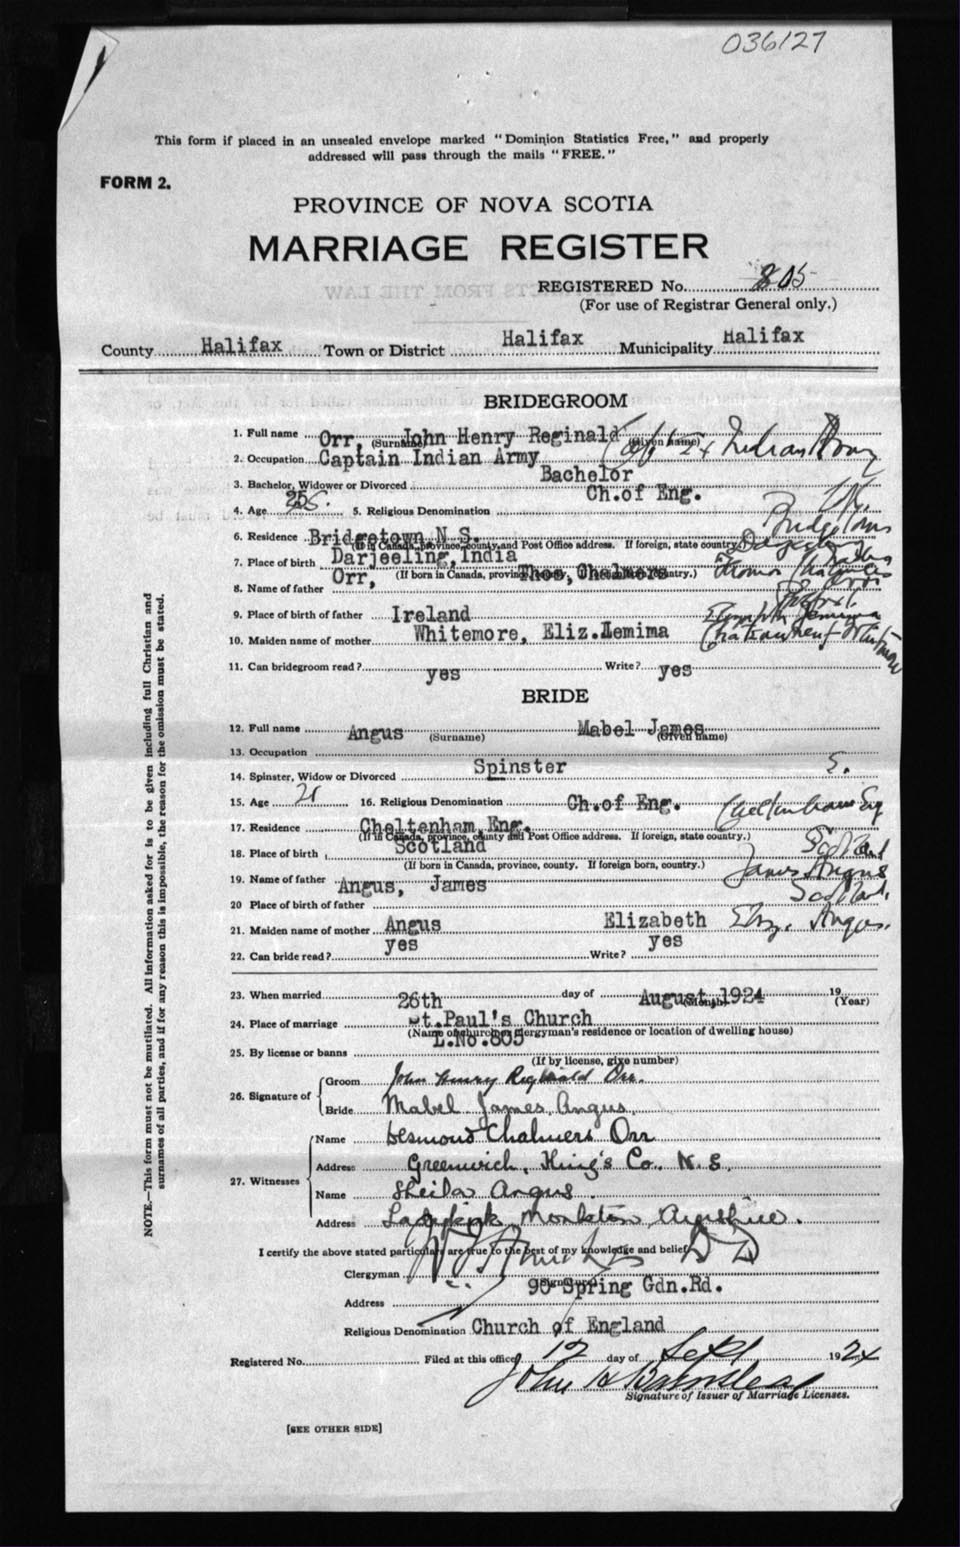 036127
This form if placed in an unsealed envelope marked "Dominion Statistics Free," and properly
addressed will pass through the mails "FREE."
FORM 2.
PROVINCE OF NOVA SCOTIA
MARRIAGE REGISTER
REGISTERED No. 805
(For use of Registrar General only.)
County Halifax Town or District Halifax Municipality Halifax
BRIDEGROOM
1. Full name Orr, (Surname) John Henry Reginald (Given name)
2. Occupation Captain Indian Army Capt Indian Army
3. Bachelor, Widower or Divorced Bachelor
4. Age 25 5. Religious Denomination Ch.of Eng.
6. Residence Bridgetown N.S. Bridgetown
(If in Canada, province, county, and Post Office address. If foreign, state country.)
7. Place of birth Darjeeling, India
(If born in Canada, province, county. If foreign born, country.)
8. Name of father Orr, Thos, Chalmers Thomas Chalmers Orr
9. Place of birth of father Ireland
10. Maiden name of mother Whitemore, Eliz. Jemima
11. Can bridegroom read? yes Write? yes
BRIDE
12. Full name Angus (Surname) Mabel James (Given name)
13. Occupation
14. Spinster, Widow or Divorced Spinster S.
15. Age 21 16. Religious Denomination Ch.of Eng.
17. Residence Cheltenham, Eng. Cheltenham Eng
(If in Canada, province, county and Post Office address. If foreign, state country.)
18. Place of birth Scotland Scotland
(If born in Canada, province, county. If foreign born, country.)
19. Name of father Angus, James James Angus
20 Place of birth of father Scotland
21. Maiden name of mother Angus Elizabeth Eliz. Angus
22. Can bride read? yes Write? yes
23. When married 26th day of August, 1924 (Month) 19 (Year)
24. Place of marriage St.Paul's Church
(Name of church or clergyman's residence or location of dwelling house)
25. By license or banns L.No.805
(If by license, give number)
26. Signature of Groom John Henry Reginald Orr.
Bride Mabel James Angus
27. Witnesses Name Desmond Chalmers Orr
Address Greenwich, King's Co. N.S.
Name Sheila Angus
Address Ladykirk Monkton Ayrshire.
I certify the above stated particulars are true to the best of my knowledge and belief
Clergyman
(Signature)
Address 90 Spring Gdn.Rd.
Religious Denomination Church of England
Registered No. Filed at this office 12 day of Sept 1924
Signature of Issuer of Marriage Licenses.
[SEE OTHER SIDE]
NOTE.—This form must not be mutilated. All information asked for is to be given including full Christian and
surnames of all parties, and if for any reason this is impossible, the reason for the omission must be stated.